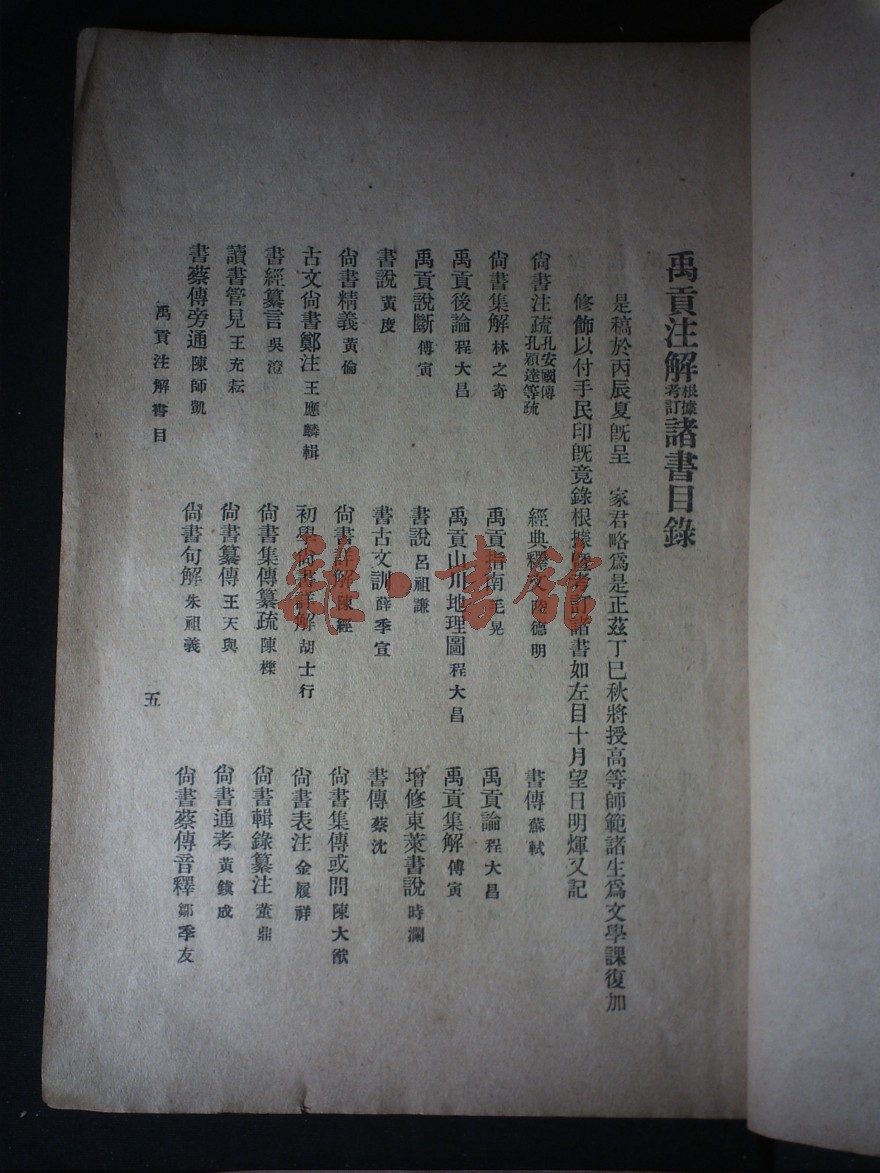 禹貢注解根據考訂諸書目錄
是稿於丙辰夏旣呈　家君略爲是正茲丁巳秋將授高等師範諸生爲文學課復加
修飾以付手民印旣竟錄根據曁考訂諸書如左目十月望日明煇又記
尙書注疏孔安國傳孔穎達等疏　經典釋文陸德明　書傳蘇軾
尙書集解林之奇　禹貢指南毛晃　禹貢論程大昌
禹貢後論程大昌　禹貢山川地理圖程大昌　禹貢集解傅寅
禹貢說斷傅寅　書說呂祖謙　增修東萊書說時瀾
書說黃度　書古文訓薛季宣　書傳蔡沈
尙書精義黃倫　尙書詳解陳經　尙書集傳或問陳大猷
古文尙書鄭注王應麟輯　初學尙書詳解胡士行　尙書表注金履祥
書經纂言吳澄　尙書集傳纂疏陳櫟　尙書輯錄纂注董鼎
讀書管見王充耘　尙書纂傳王天與　尙書通考黃鎭成
書蔡傳旁通陳師凱　尙書句解朱祖義　尙書蔡傳音釋鄒季友
禹貢注解書目　五
雜·書館